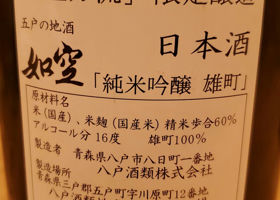 限定醸造
五戸の地酒
日本酒
如空
「純米吟醸 雄町」
原材料名
米（国産）、米麹（国産米）精米歩合60％
アルコール分16度 雄町100％
製造者 青森県八戸市八日町一番地
八戸酒類株式会社
製造場所
青森県三戸郡五戸町字川原町12番地
八戸酒類